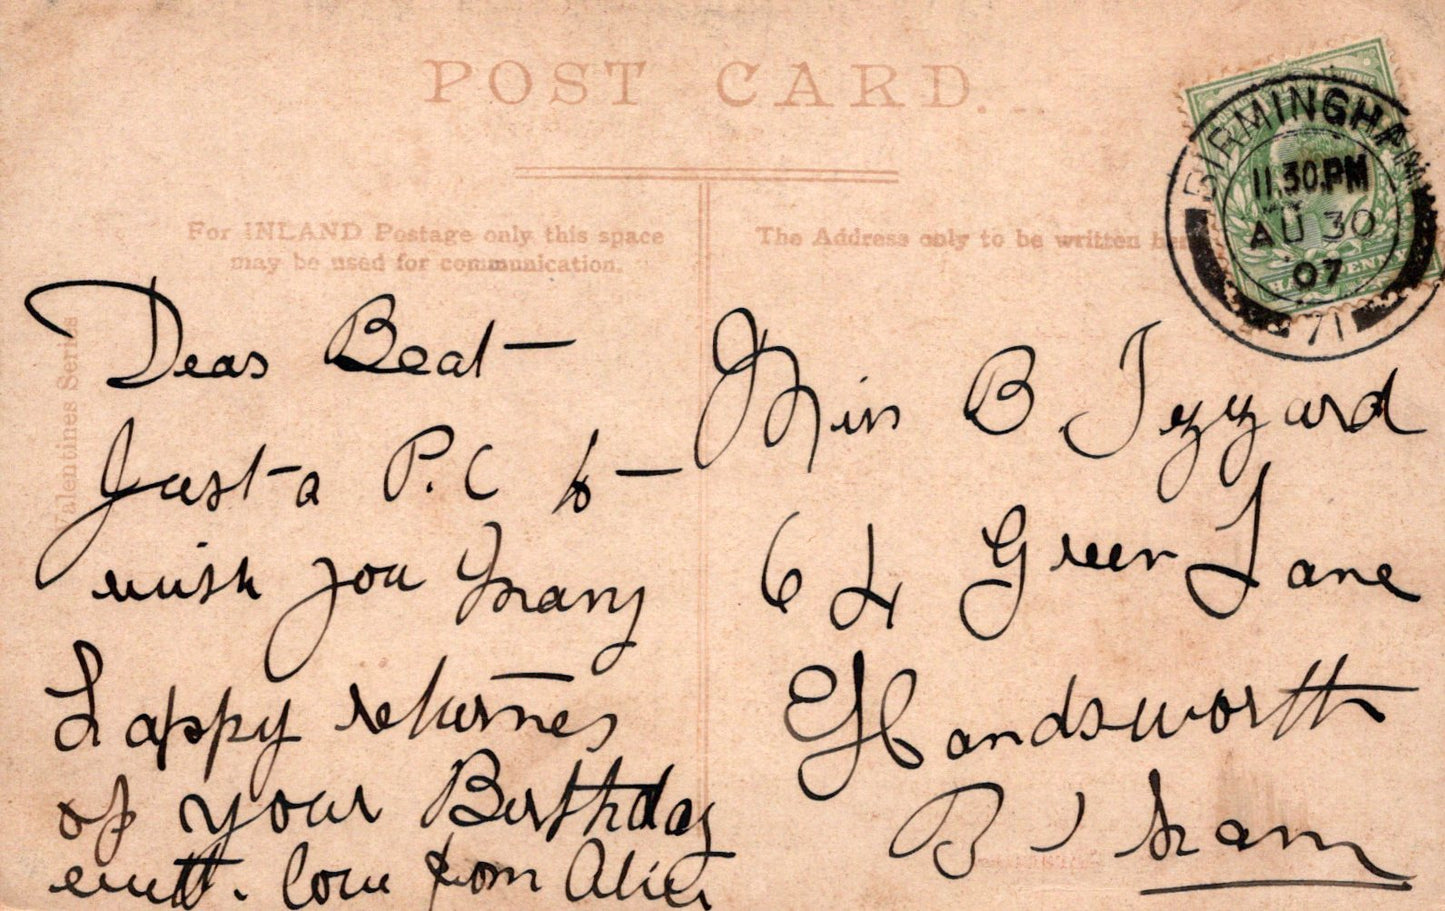 POST CARD.
For INLAND Postage only this space
may be used for communication.
The Address only to be written here
BIRMINGHAM
11.30.PM
AU 30
07
71
HALFPENNY
Valentines Series
Dear Beat
Just a P.C to
wish you Many
happy returnes
of your Birthday
with love from Alice
Miss B. Izzard
64 Green Lane
Handsworth
B'ham